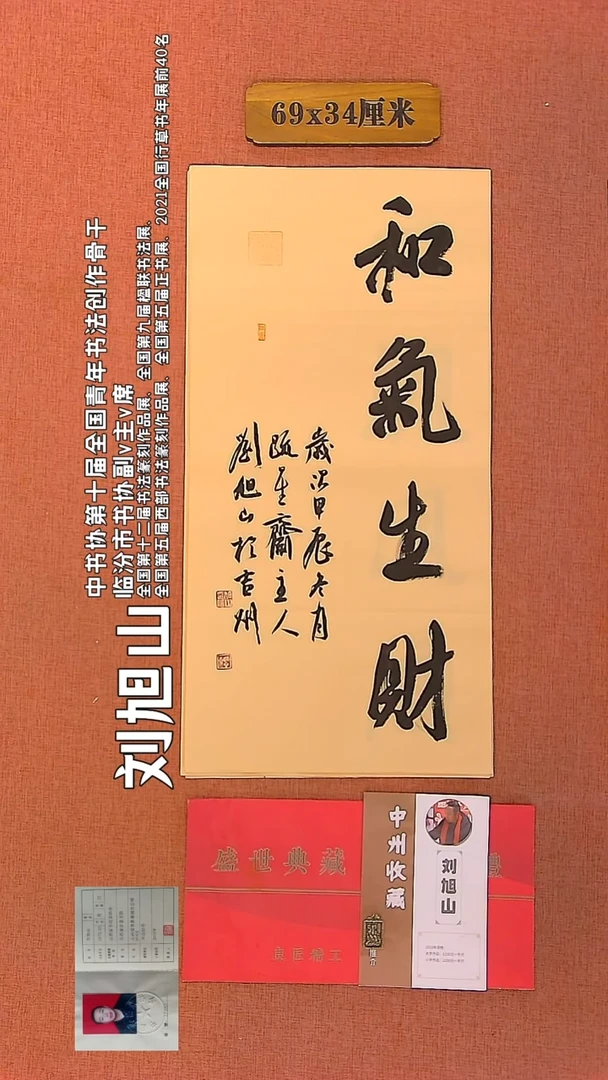 69x34厘米
和氣生財
歲次甲辰冬月
疏星齋主人
劉旭山於吉州
刘旭山
中书协第十届全国青年书法创作骨干
临汾市书协副v主v席
全国第十二届书法篆刻作品展、全国第九届楹联书法展、
全国第五届西部书法篆刻作品展、全国第五届正书展、2021全国行草书年展前40名
盛世典藏
良匠精工
中州收藏
推介
刘旭山